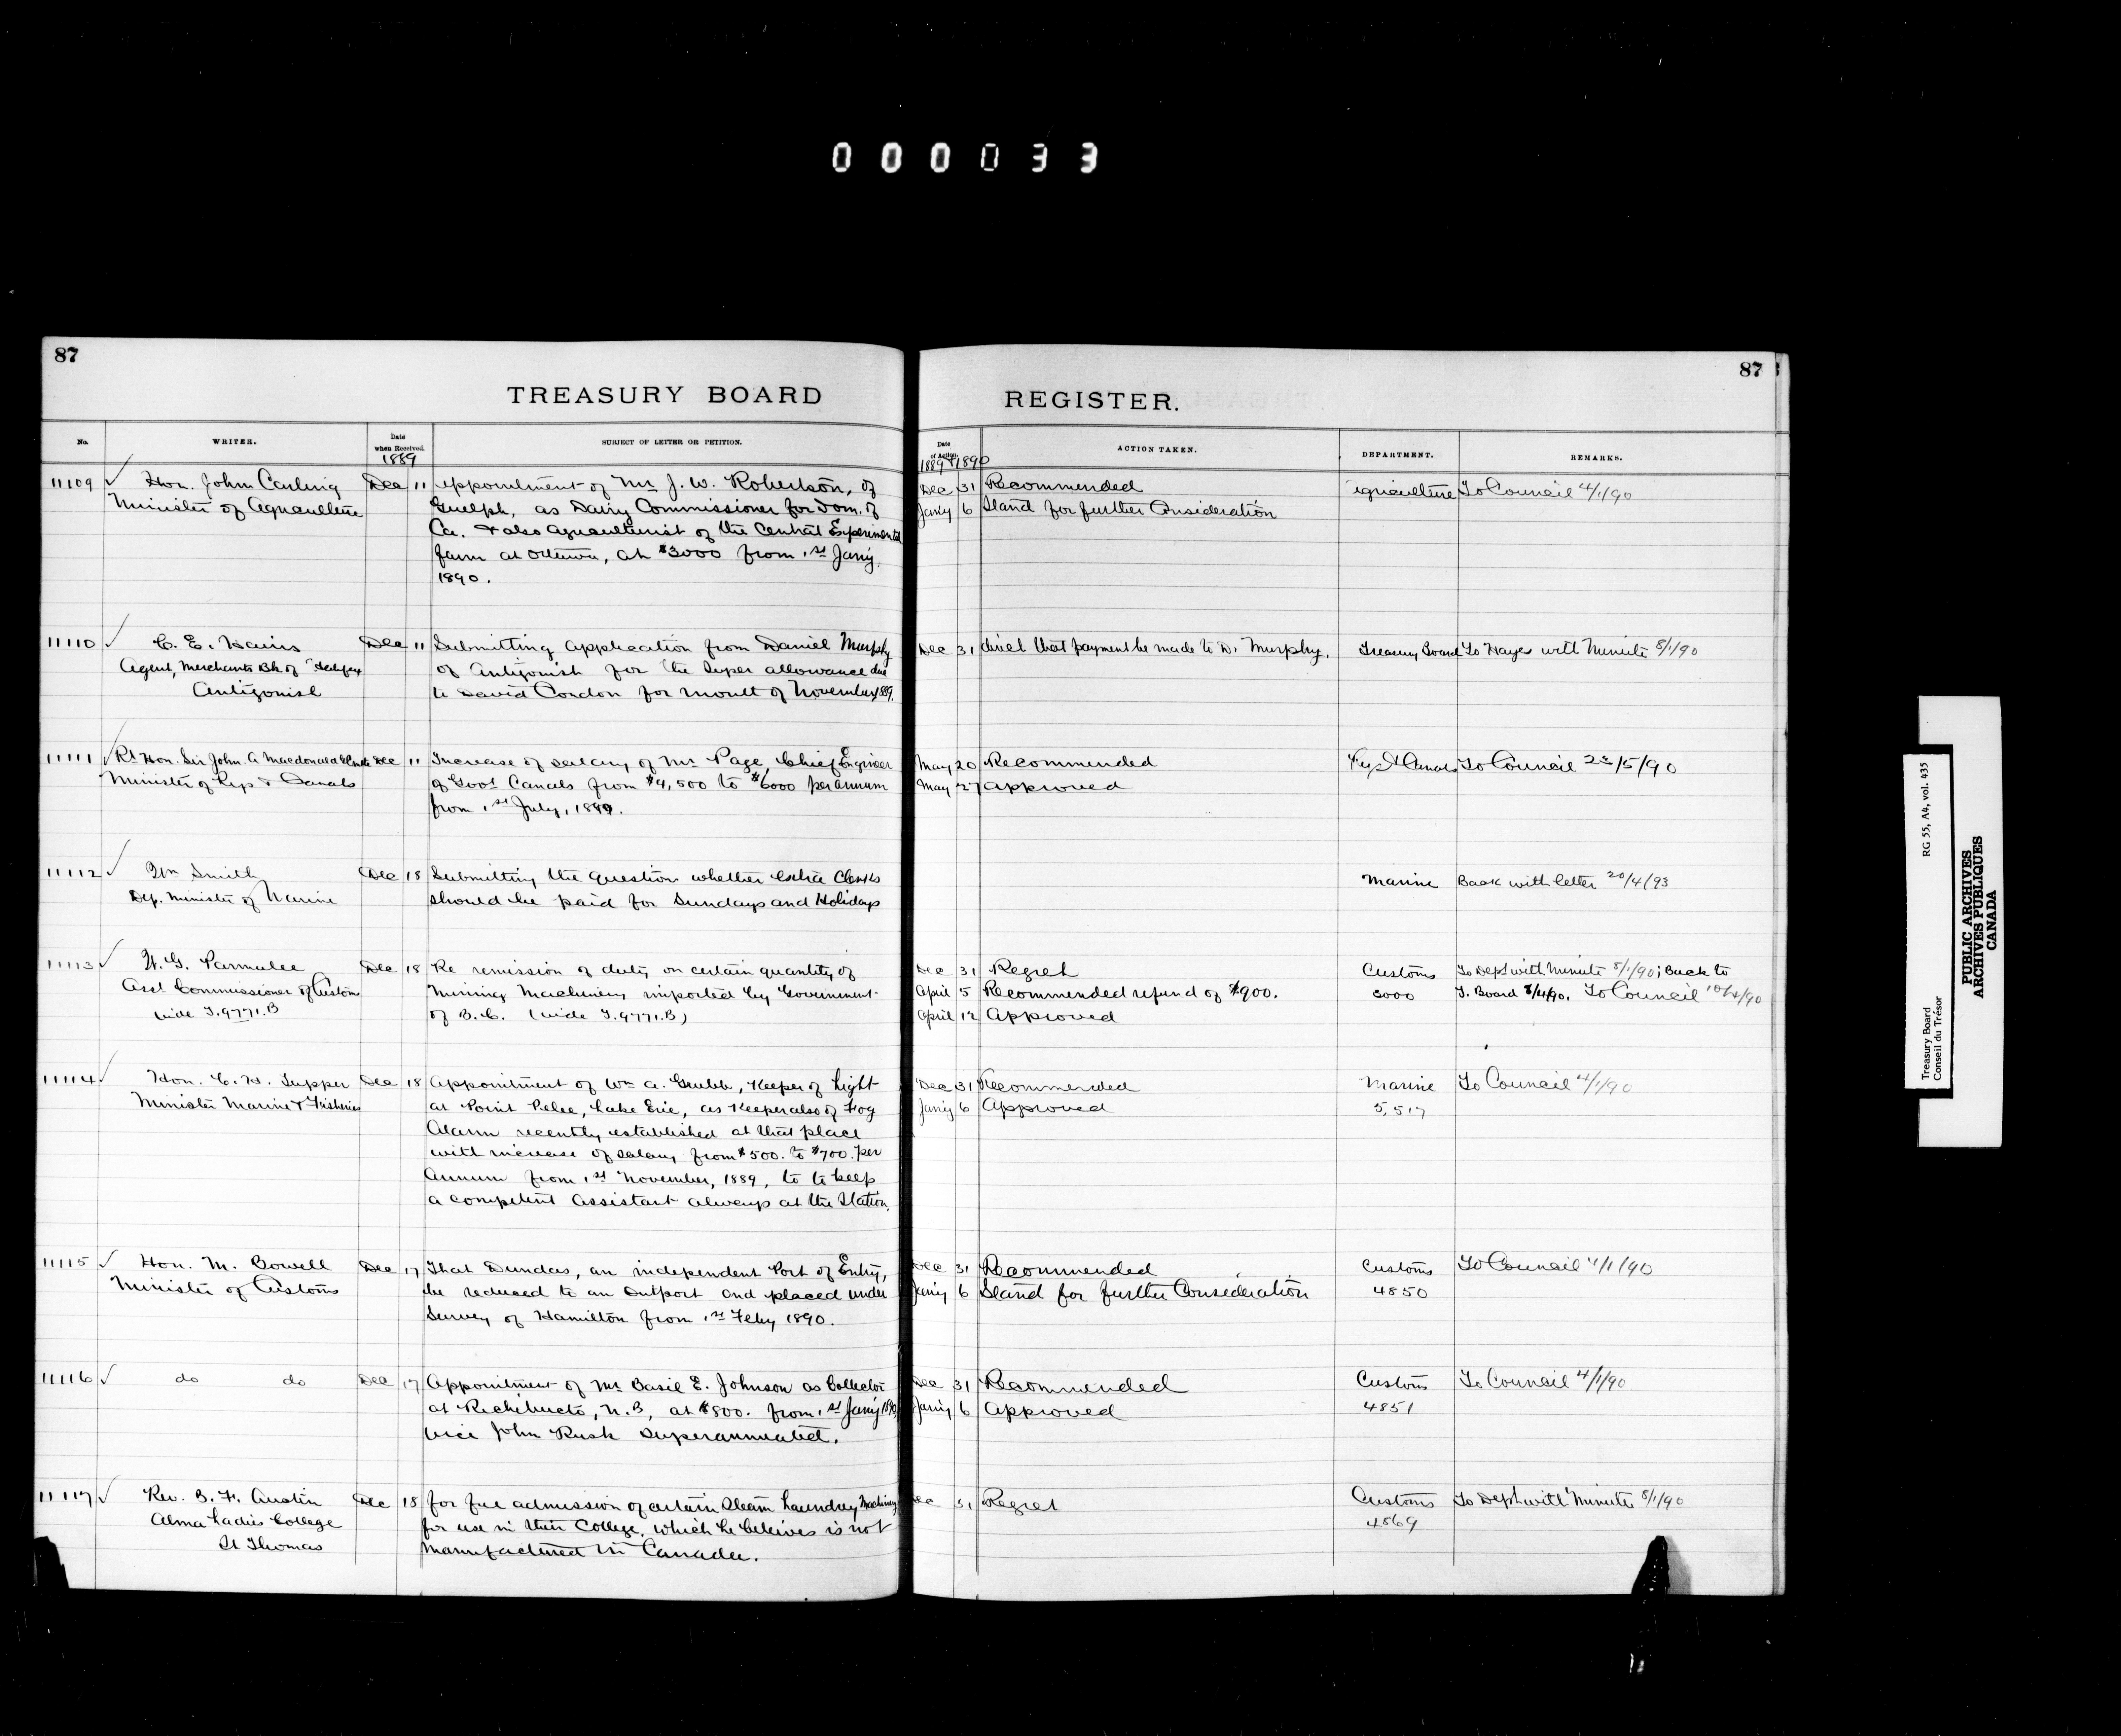 000033
87
TREASURY BOARD
No.
WRITER.
Date
when Received.
1889
SUBJECT OF LETTER OR PETITION.
11109 ✓ Hon. John Carling Dec 11 Appointment of Mr J. W. Robertson, of
Minister of Agriculture Guelph, as Dairy Commissioner for Dom. of
Ca. & also Agriculturist of the Central Experimental
farm at Ottawa, at $3000 from 1st Jany.
1890.
11110 ✓ C. E. Harris Dec 11 Submitting application from Daniel Murphy
Agent, Merchants Bk. of Halifax of Antigonish for the Super allowance due
Antigonish to David Condon for month of November 1889.
11111 ✓ Rt Hon. Sir John A Macdonald Dec 11 Increase of salary of Mr Page, Chief Engineer
Minister of Rys & Canals of Govt Canals from $4,500 to $6000 per annum
from 1st July, 1889.
11112 ✓ Wm Smith Dec 18 Submitting the question whether extra Clerks
Dep. Minister of Marine should be paid for Sundays and Holidays
11113 ✓ W. G. Parmelee Dec 18 Re remission of duty on certain quantity of
Asst Commissioner of Customs Mining Machinery imported by Government
vide T.9771.B of B.C. (vide T.9771.B)
11114 ✓ Hon. C. H. Tupper Dec 18 Appointment of Wm A. Grubb, Keeper of Light
Minister Marine & Fisheries at Point Pelee, Lake Erie, as Keeper also of Fog
Alarm recently established at that place
with increase of salary from $500. to $700. per
Annum from 1st November, 1889, to to keep
a competent Assistant always at the Station.
11115 ✓ Hon. M. Bowell Dec 17 That Dundas, an independent Port of Entry,
Minister of Customs be reduced to an Outport and placed under
Survey of Hamilton from 1st Feby 1890.
11116 ✓ do do Dec 17 Appointment of Mr Basil E. Johnson as Collector
at Richibucto, N.B, at $800. from 1st Jany 1890
vice John Rusk Superannuated.
11117 ✓ Rev. B. F. Austin Dec 18 for free admission of certain Steam Laundry Machinery
Alma Ladies College for use in their College, which he beleives is not
St Thomas manufactured in Canada.
87
REGISTER.
Date
of Action.
1889 & 1890
ACTION TAKEN.
DEPARTMENT.
REMARKS.
Dec 31 Recommended Agriculture To Council 4/1/90
Jany 6 Stand for further Consideration
Dec 31 direct that payment be made to D. Murphy. Treasury Board To Hayes with Minute 8/1/90
May 20 Recommended Rys & Canals To Council 23/5/90
May 27 Approved
Marine Back with letter 20/4/93
Dec 31 Regret Customs To Dept with Minute 8/1/90; Back to
April 5 Recommended refund of $900. 3000 T. Board 8/4/90. To Council 10/4/90
April 12 Approved
Dec 31 Recommended Marine To Council 4/1/90
Jany 6 Approved 5,517
Dec 31 Recommended Customs To Council 4/1/90
Jany 6 Stand for further Consideration 4850
Dec 31 Recommended Customs To Council 4/1/90
Jany 6 Approved 4851
Dec 31 Regret Customs To Dept with Minute 8/1/90
4869
Treasury Board RG 55, A4, vol. 435
Conseil du Trésor
PUBLIC ARCHIVES
ARCHIVES PUBLIQUES
CANADA